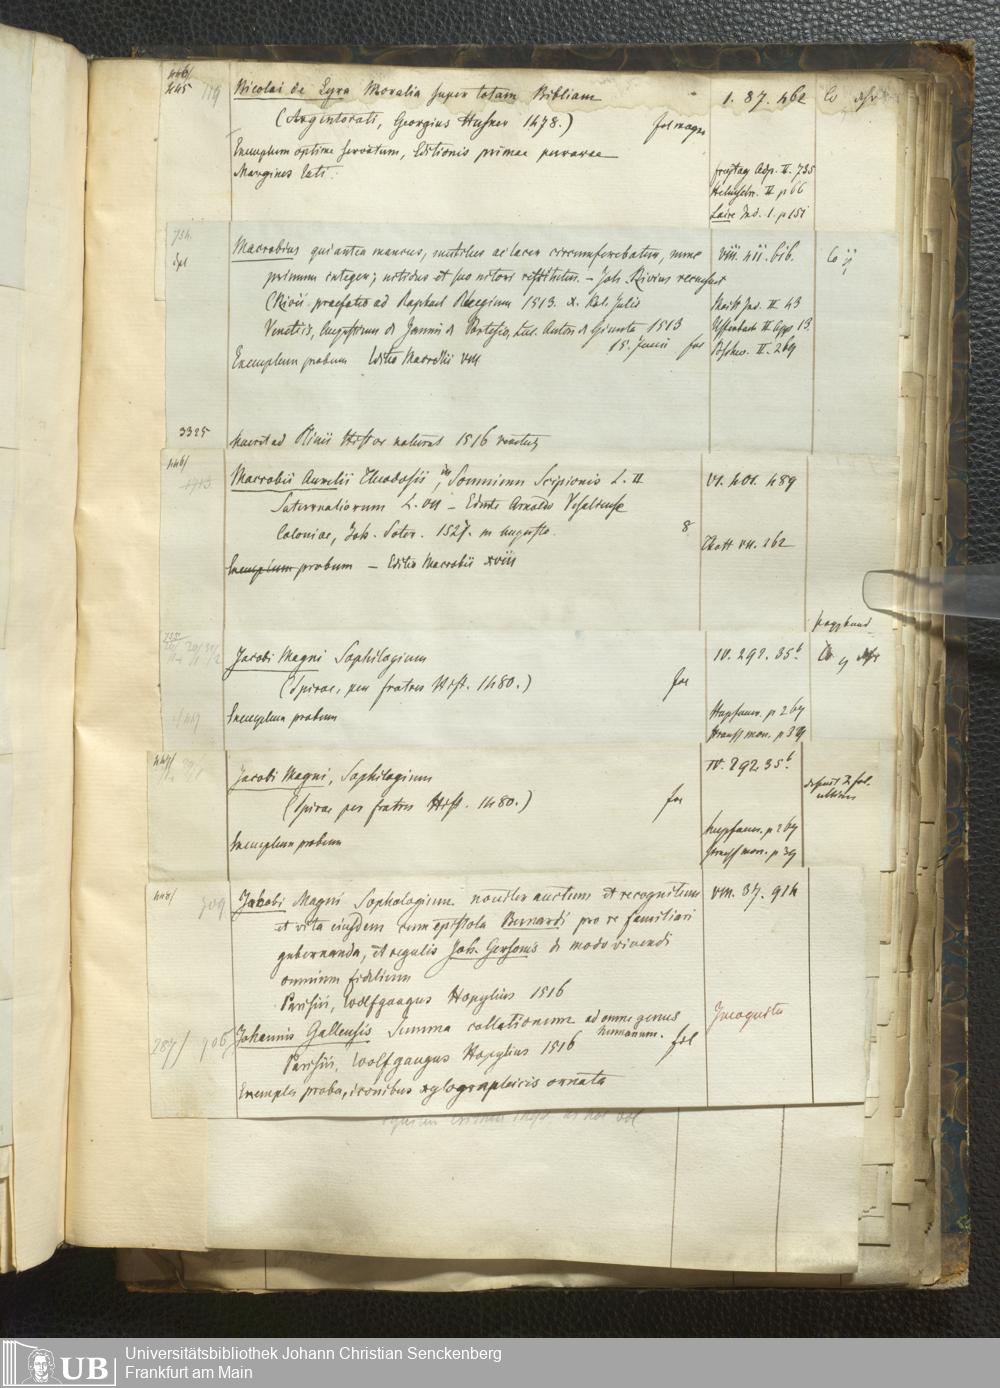 446/
445 119 Nicolai de Lyra Moralia super totam Bibliam 1. 87. 462 Co
(Argentorati, Georgius Husner 1478.) fol magn
Exemplum optime servatum, Editionis primae
Margines lati. Freytag Adp. II. 735
II p 66
Laire Ind. 1. p 151
734.
Macrobius qui antea mancus, mutilus ac lacer circumferebatur, nunc VIII. 411. 616. Co ij
primum integer; nitidus et suo nitori restitutus. – Joh. Rivius recensuit
(Rivii praefatio ad Raphael Regium 1513. x. Kal. Julis II 43
Venetiis, Augustinus de Zannis de Portesio, Luc. Anton. de Giunta 1513 Uffenbach II App 13.
15. Junii fol II. 269
Exemplum probum Editio Macrobii VIII
3325
ad Plinii Histor natural 1516
446/
1913 Macrobii Aurelii Theodosii in Somnium Scipionis L. II VI. 401. 489
Saturnaliorum L. VII – Edente Arnoldo Vesaliense
Coloniae, Joh. Soter. 1527. m Augusto. 8
Thott VII. 262
Exemplum probum – Editio Macrobii XVIII
Jacobi Magni Sophilogium IV. 292. 35b
(Spirae, per fratres Hist. 1480.) fol
Exemplum probum p 269
mon. p 39
447/
Jacobi Magni, Sophilogium IV. 292. 35b
(Spirae per fratres Hist. 1480.) fol
deficit 2 fol.
ultimum
Exemplum probum p 269
mon. p 39
448/ 309 Jakobi Magni Sophologium noviter auctum et recognitum VIII. 37. 914
et vita eiusdem cum epistola Bernardi pro re familiari
gubernanda, et regulis Joh. Gersonis de modo vivendi
omnium fidelium
Parisiis, Wolfgangus Hopylius 1516
Incognita
287/ 906 Johannis Gallensis Summa collationum ad omne genus
humanum. fol
Parisiis, Wolfgangus Hopylius 1516
Exempla proba, iconibus xylographicis ornata
UB Universitätsbibliothek Johann Christian Senckenberg
Frankfurt am Main